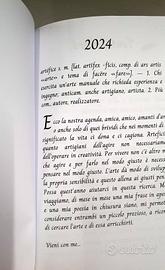 2024
artefice s. m. [lat. artĭfex -fĭcis, comp. di ars artis
«arte» e tema di facĕre «fare»]. – 1. Chi
esercita un'arte manuale che richieda esperienza e
ingegno; anticam. anche artigiano, artista. 2. Più
com., autore, realizzatore.
Ecco la nostra agenda, amica, amico, amanti d'arte
o anche solo di quei brividi che nei momenti di
significato la vita ci dona e ci cagiona. Artefici
quanto artigiani dell'agire non necessariamente
dell'operare in creatività. Per vivere non c'è altro
che agire e per farlo nel modo giusto è necessario
pensare nel modo giusto. L'arte dà modo di sviluppare
la propria sensibilità e questo dona al fine
Possa quest'anno aiutarci in questa ricerca. Ma
viaggiamo, di mese in mese ad una sua opera
e una mia poesia in chiusura siano, mi permetto
considerare entrambi un piccolo prezioso, a ricordo
di cercare l'arte e di essa arricchirti.
Vieni con me...
Subito